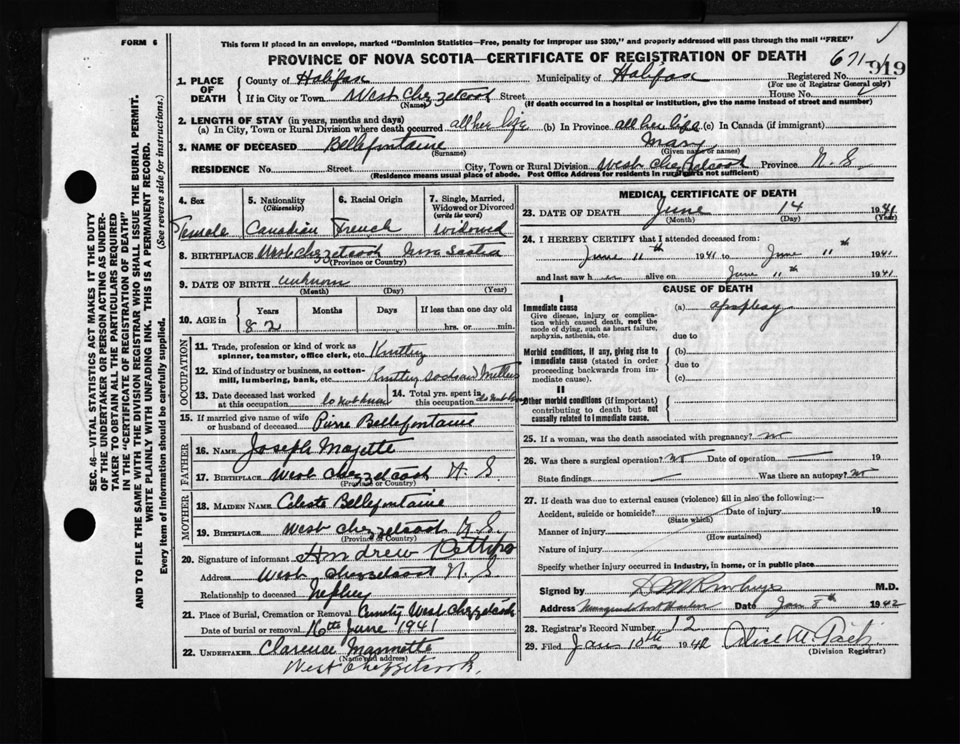 FORM 6
This form if placed in an envelope, marked "Dominion Statistics—Free, penalty for improper use $300," and properly addressed will pass through the mail "FREE"
PROVINCE OF NOVA SCOTIA—CERTIFICATE OF REGISTRATION OF DEATH 671
919
1. PLACE OF DEATH
County of Halifax Municipality of Halifax Registered No.
(For use of Registrar General only)
If in City or Town West Chezzetcook Street House No.
(Name) (If death occurred in a hospital or institution, give the name instead of street and number)
2. LENGTH OF STAY (in years, months and days)
(a) In City, Town or Rural Division where death occurred all her life (b) In Province all her life (c) In Canada (if immigrant)
3. NAME OF DECEASED Bellefontaine Mary
(Surname) (Given name or names)
RESIDENCE No. Street City, Town or Rural Division West Chezzetcook Province N. S.
(Residence means usual place of abode. Post Office Address for residents in rural parts not sufficient)
4. Sex Female
5. Nationality (Citizenship) Canadian
6. Racial Origin French
7. Single, Married, Widowed or Divorced (write the word) Widowed
8. BIRTHPLACE West Chezzetcook Nova Scotia
(Province or Country)
9. DATE OF BIRTH unknown
(Month) (Day) (Year)
10. AGE in Years Months Days If less than one day old
82 hrs. or min.
OCCUPATION
11. Trade, profession or kind of work as spinner, teamster, office clerk, etc.
12. Kind of industry or business, as cotton-mill, lumbering, bank, etc.
13. Date deceased last worked at this occupation
14. Total yrs. spent in this occupation
15. If married give name of wife or husband of deceased Pierre Bellefontaine
FATHER
16. NAME Joseph Mayette
17. BIRTHPLACE West Chezzetcook N. S
(Province or Country)
MOTHER
18. MAIDEN NAME Celeste Bellefontaine
19. BIRTHPLACE West Chezzetcook N. S
(Province or Country)
20. Signature of informant Andrew
Address West Chezzetcook N. S
Relationship to deceased Nephew
21. Place of Burial, Cremation or Removal West Chezzetcook
Date of burial or removal 16th June 1941
22. UNDERTAKER Clarence Mannette
(Name and address)
West Chezzetcook.
MEDICAL CERTIFICATE OF DEATH
23. DATE OF DEATH June 14 1941
(Month) (Day) (Year)
24. I HEREBY CERTIFY that I attended deceased from:
June 11th 1941 to June 11th 1941
and last saw her alive on June 11th 1941
CAUSE OF DEATH
I
Immediate cause (a)
Give disease, injury or complication which caused death, not the mode of dying, such as heart failure, asphyxia, asthenia, etc. due to
Morbid conditions, if any, giving rise to immediate cause (stated in order proceeding backwards from immediate cause). (b)
due to
(c)
II
Other morbid conditions (if important) contributing to death but not causally related to immediate cause.
25. If a woman, was the death associated with pregnancy? no
26. Was there a surgical operation? no Date of operation 19
State findings Was there an autopsy? no
27. If death was due to external causes (violence) fill in also the following:—
Accident, suicide or homicide? Date of injury 19
(State which)
Manner of injury
(How sustained)
Nature of injury
Specify whether injury occurred in industry, in home, or in public place
Signed by M.D.
Address Date Jan 8th 1942
28. Registrar's Record Number 12
29. Filed Jan 10th 1942
(Division Registrar)
SEC. 46—VITAL STATISTICS ACT MAKES IT THE DUTY
OF THE UNDERTAKER OR PERSON ACTING AS UNDERTAKER TO OBTAIN ALL THE PARTICULARS REQUIRED
IN THE "CERTIFICATE OF REGISTRATION OF DEATH"
AND TO FILE THE SAME WITH THE DIVISION REGISTRAR WHO SHALL ISSUE THE BURIAL PERMIT.
WRITE PLAINLY WITH UNFADING INK. THIS IS A PERMANENT RECORD.
Every item of information should be carefully supplied. (See reverse side for instructions.)